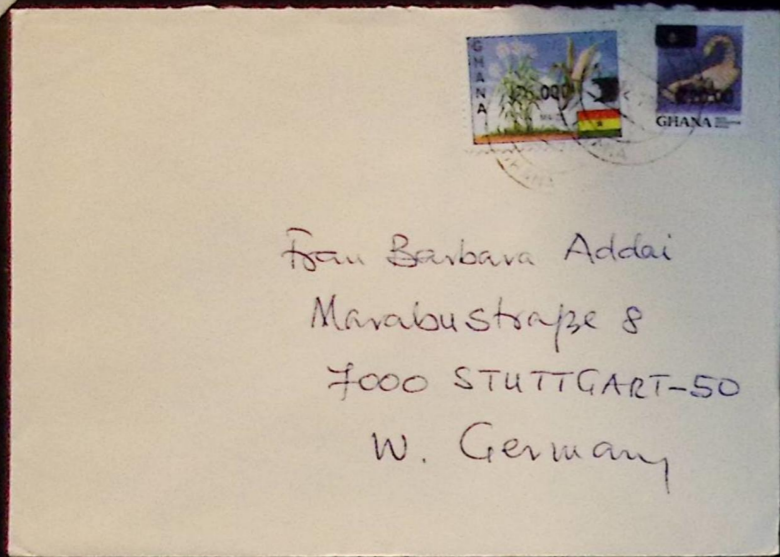 GHANA
GHANA
Frau Barbara Addai
Marabustraße 8
7000 STUTTGART-50
W. Germany